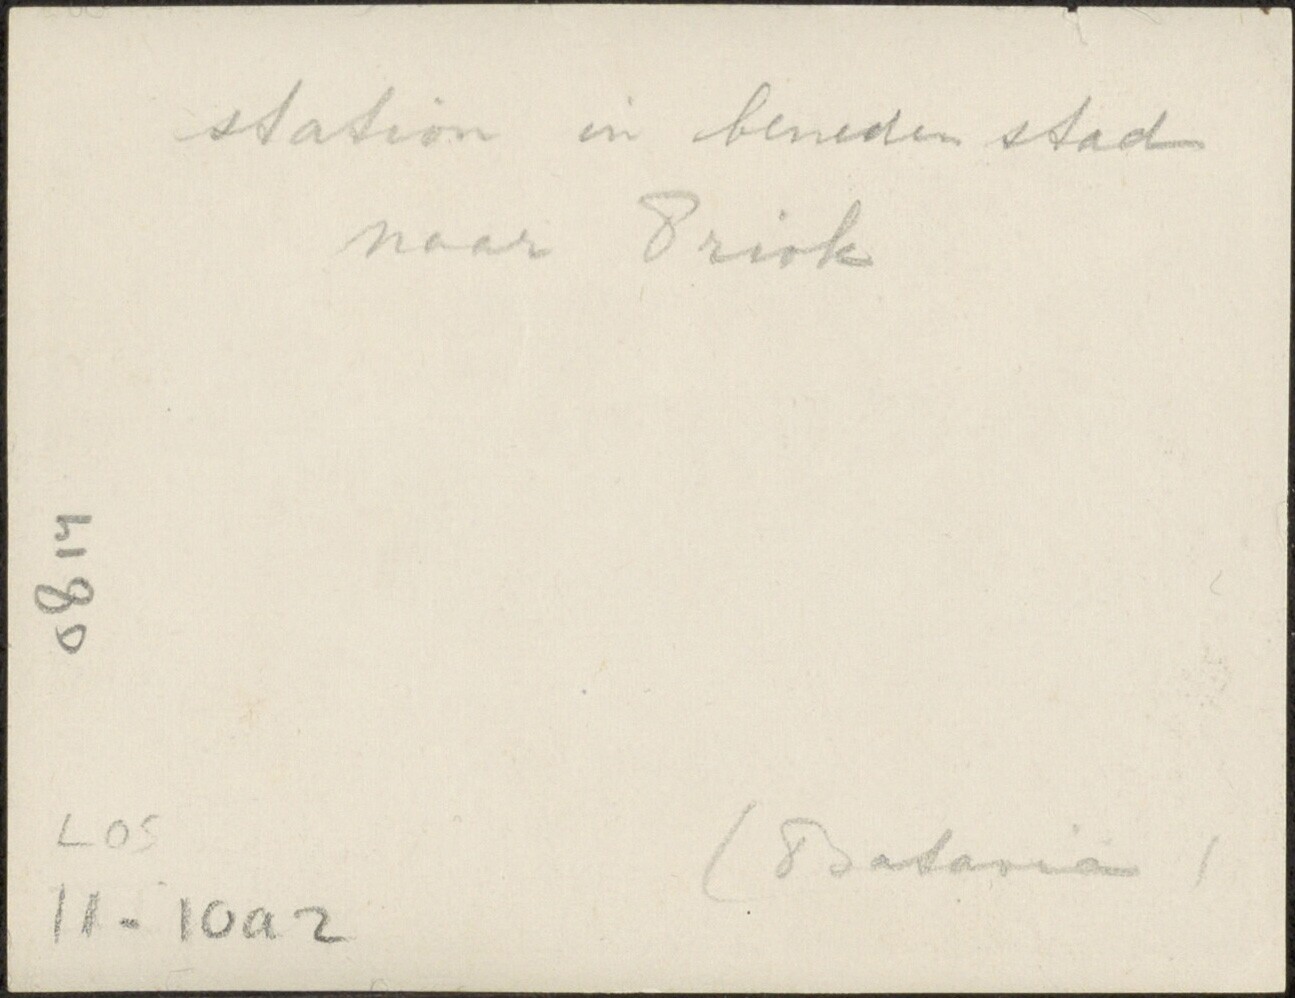 station in beneden stad
naar Priok
0814
LOS
(Batavia)
11-10a2